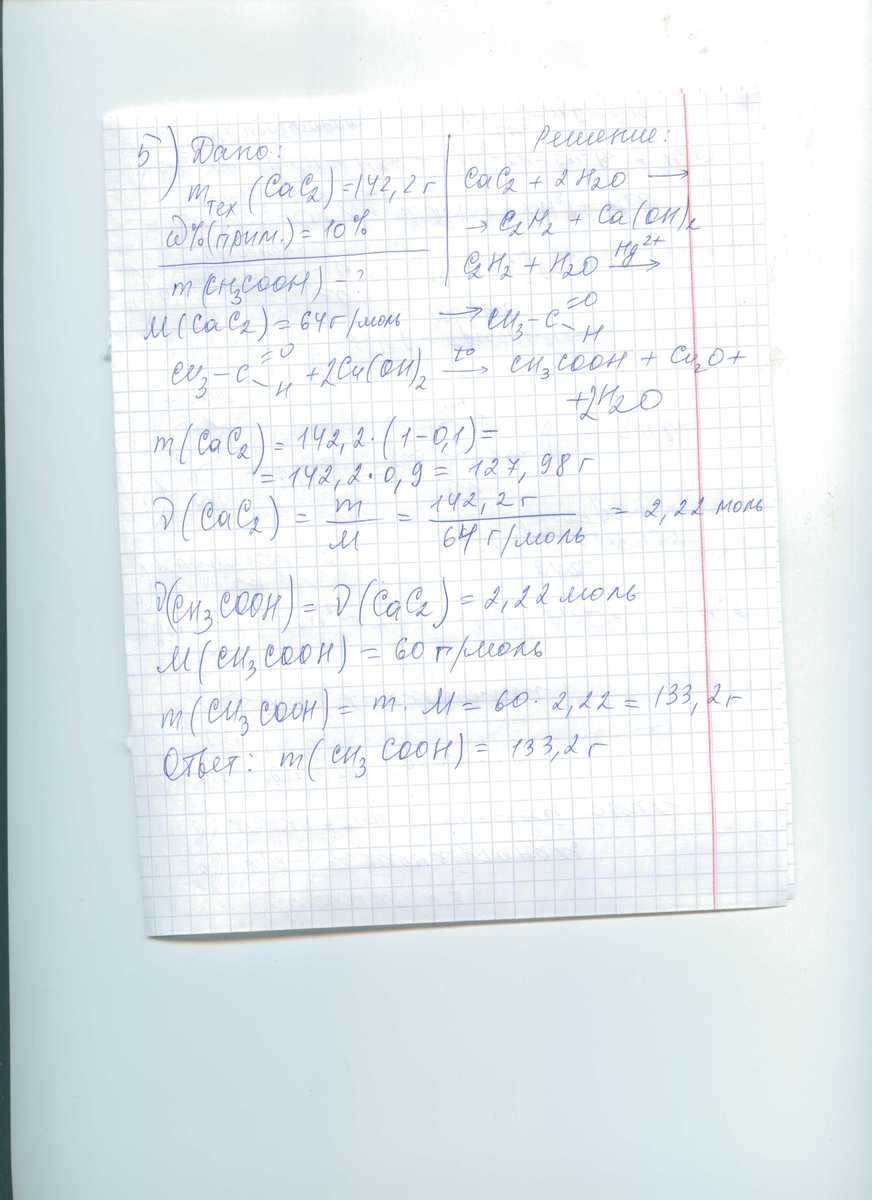 5) Дано:
mтех (CaC2) = 142,2 г
ω%(прим.) = 10%
m(CH3COOH) - ?
M(CaC2) = 64 г/моль
Решение:
CaC2 + 2H2O →
→ C2H2 + Ca(OH)2
C2H2 + H2O Hg2+ →
→ CH3-C =O -H
CH3-C =O -H + 2Cu(OH)2 t° → CH3COOH + Cu2O +
+ 2H2O
m(CaC2) = 142,2 · (1-0,1) =
= 142,2 · 0,9 = 127,98 г
ν(CaC2) = m/M = 142,2 г/64 г/моль = 2,22 моль
ν(CH3COOH) = ν(CaC2) = 2,22 моль
M(CH3COOH) = 60 г/моль
m(CH3COOH) = m · M = 60 · 2,22 = 133,2 г
Ответ: m(CH3COOH) = 133,2 г